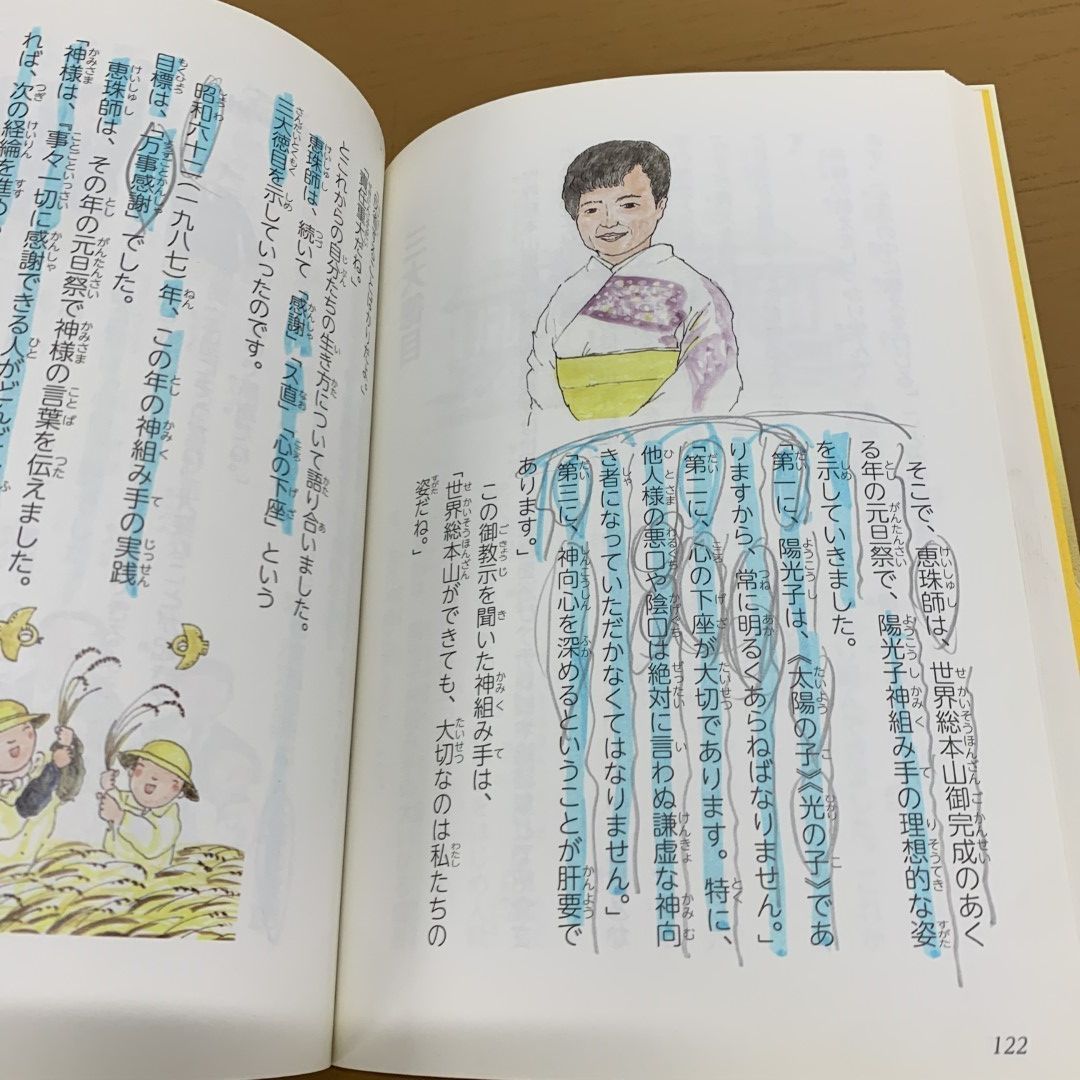 そこで、恵珠師は、世界総本山御完成のあく
る年の元旦祭で、陽光子神組み手の理想的な姿
を示していきました。
「第一に、陽光子は、《太陽の子》《光の子》であ
りますから、常に明るくあらねばなりません。」
「第二に、心の下座が大切であります。特に、
他人様の悪口や陰口は絶対に言わぬ謙虚な神向
き者になっていただかなくてはなりません。」
「第三に、神向心を深めるということが肝要で
あります。」
この御教示を聞いた神組み手は、
「世界総本山ができても、大切なのは私たちの
姿だね。」
122
とこれからの自分たちの生き方について語り合いました。
恵珠師は、続いて「感謝」「ス直」「心の下座」という
三大徳目を示していったのです。
昭和六十二(一九八七)年、この年の神組み手の実践
目標は、「万事感謝」でした。
恵珠師は、その年の元旦祭で神様の言葉を伝えました。
「神様は、『事々一切に感謝できる人がどんど
れば、次の経綸を進め